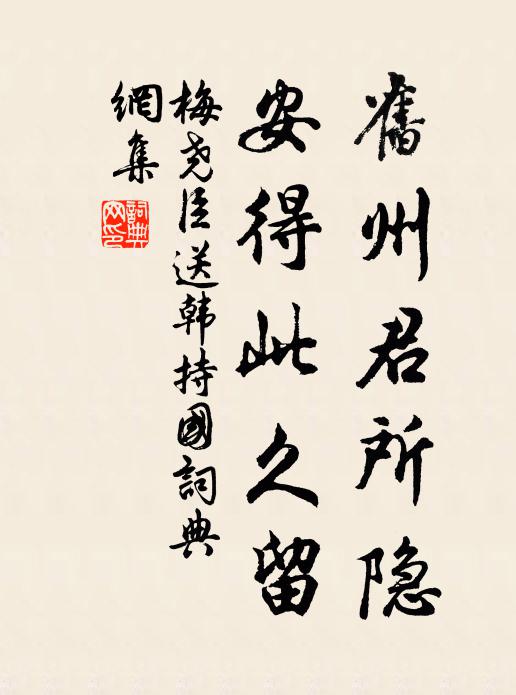 舊州君所隐
安得此久留
梅尧臣送韩持國詞典
網集
詞典
网印